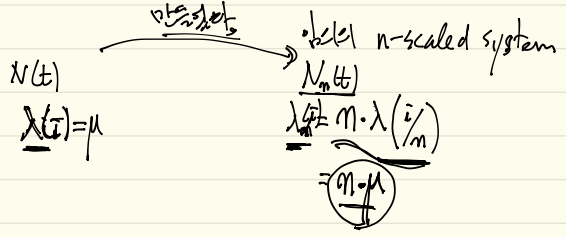 n-scaled system
N(t)
N_n(t)
λ(i) = μ
λ_n(i) = n·λ(i/n)
= n·μ